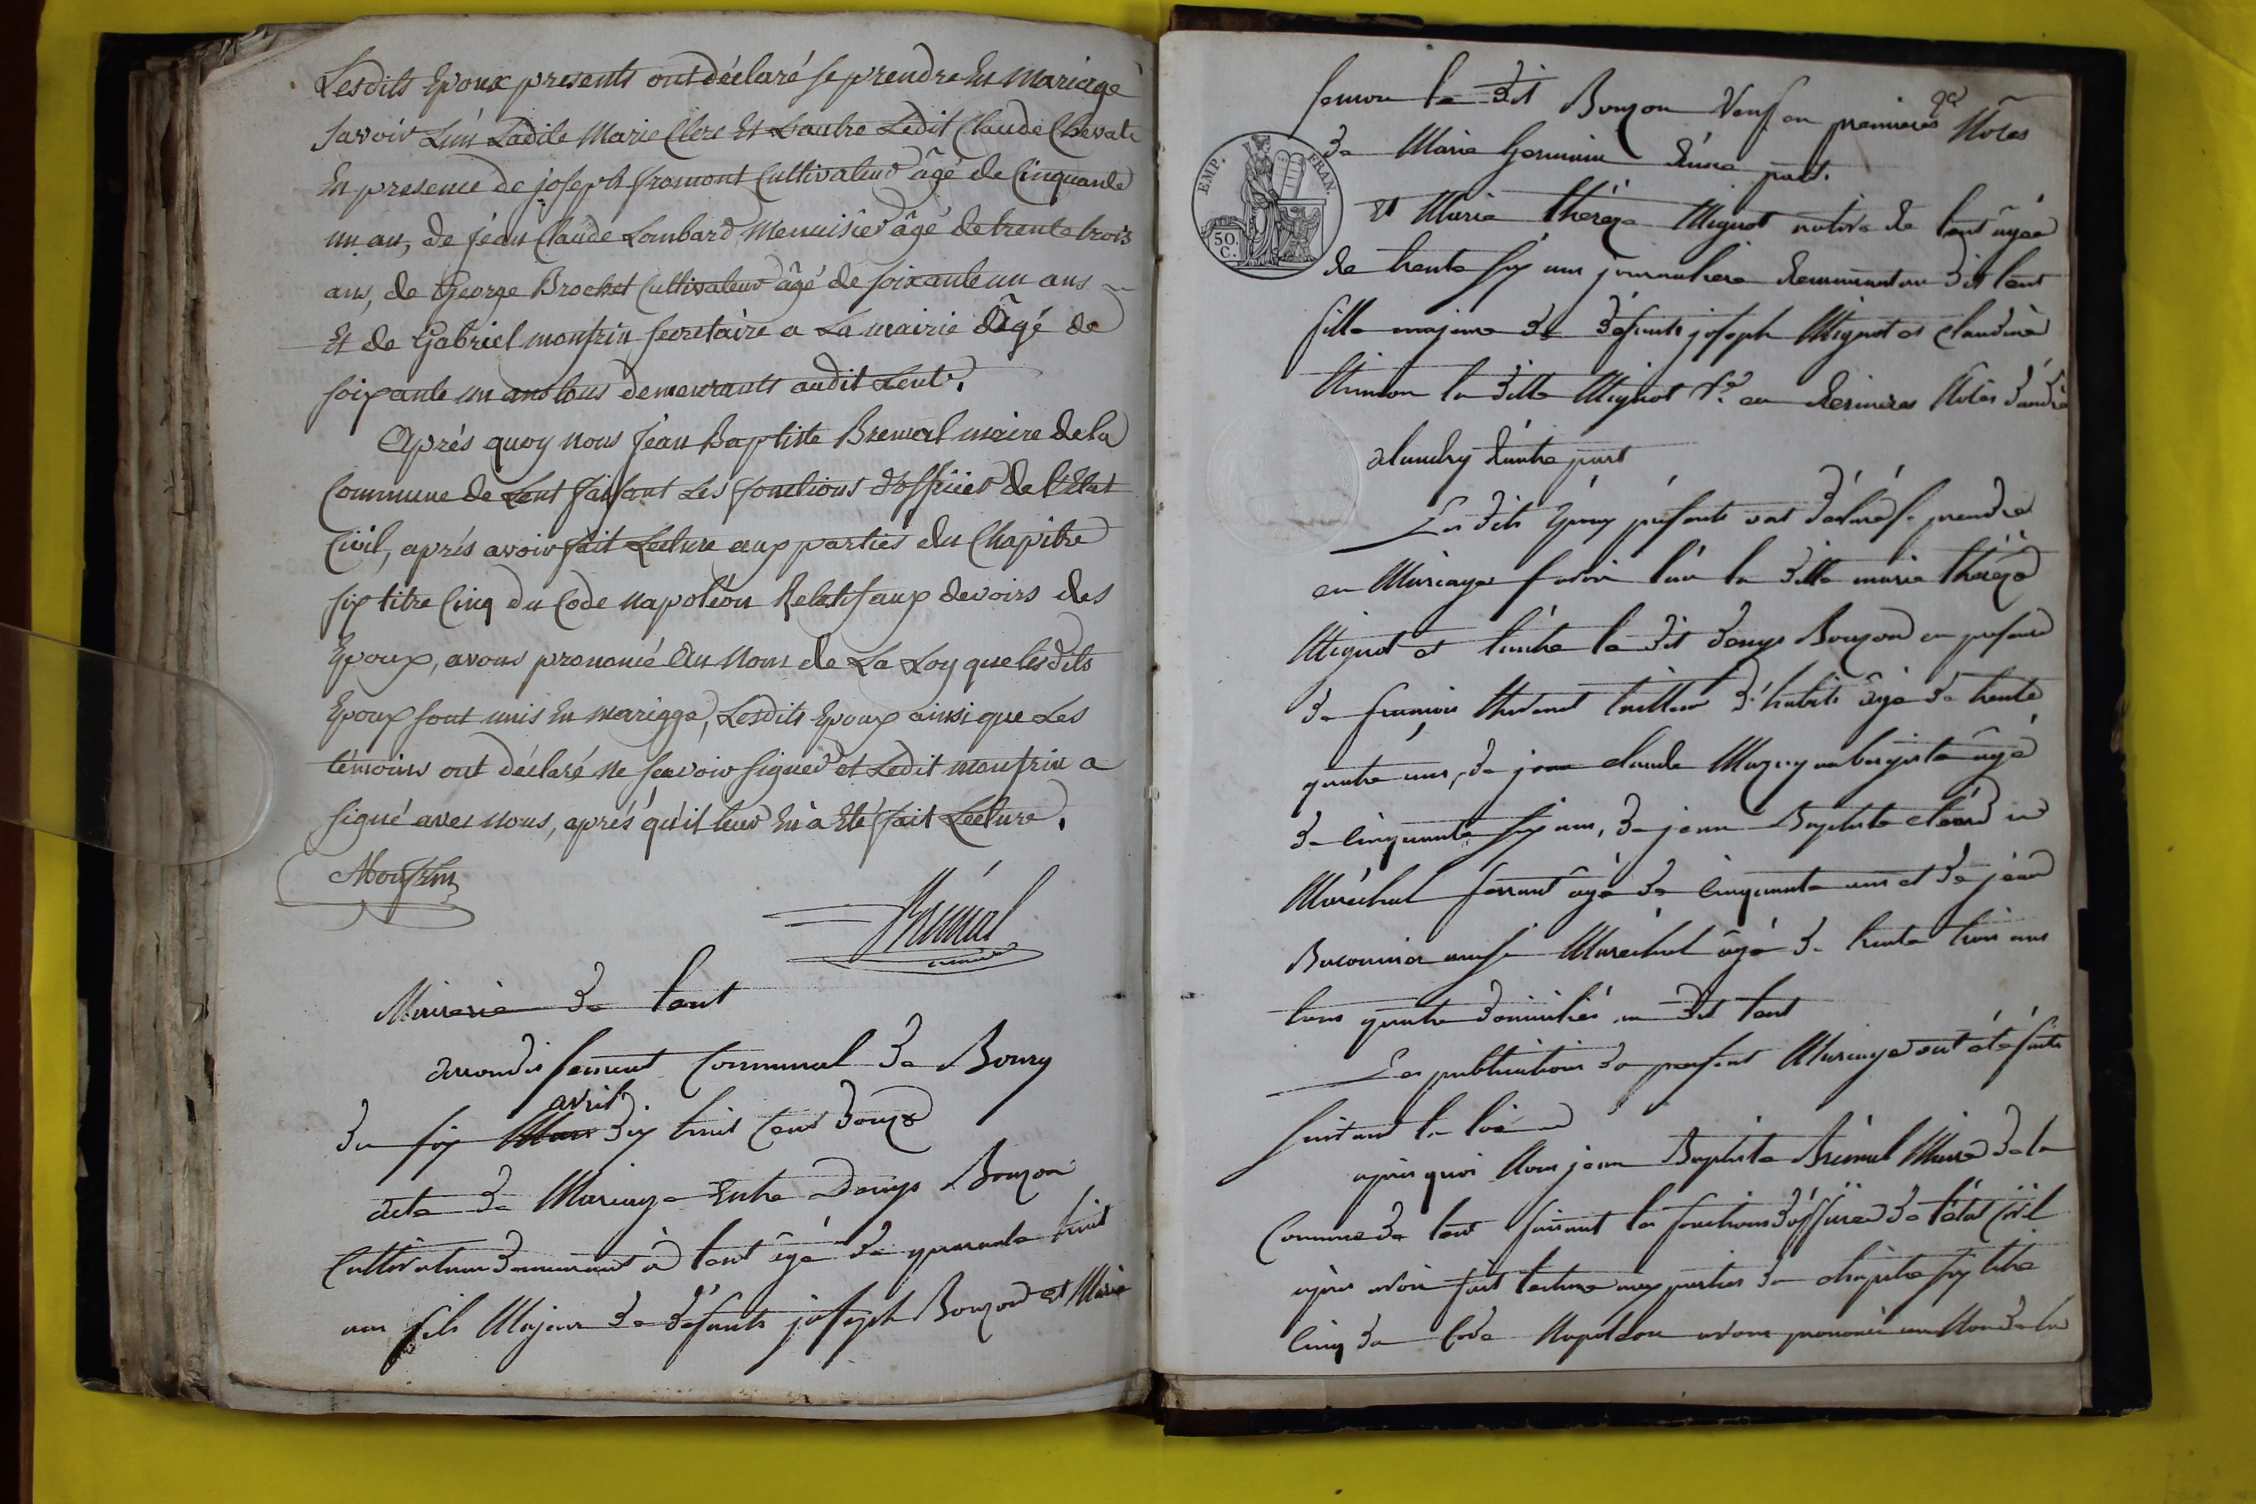 Lesdits Epoux presents ont déclaré se prendre En Mariage
savoir L'un Ladite Marie Clere Et Lautre Ledit Claude Chevat
En presence de joseph fromont Cultivateur âgé de Cinquante
un an, de jéan Claude Lombard Menuisier âgé de trente trois
ans, de George Brochet Cultivateur âgé de soixante un ans
Et de Gabriel monfrin secretaire a La mairie âgé de
soixante un ans tous demeurants audit Lent.
Après quoy nous Jéan Baptiste Bremal maire de la
Commune de Lent faisant Les fonctions d'officier de l'Etat
Civil, après avoir fait Lecture aux parties du Chapitre
six titre Cinq du Code Napoléon Relatif aux devoirs des
Epoux, avons prononcé Au Nom de La Loy que lesdits
Epoux sont unis En mariage, Lesdits Epoux ainsi que Les
témoins ont déclaré ne scavoir signer et Ledit monfrin a
signé avec nous, après qu'il leur En à Eté fait Lecture.
Monfrin
Brémal
maire
Mairerie de Lent
arrondissement Communal de Bourg
avril
du six Mars dix huit Cent douze
acte de Mariage Entre Denys Bouzon
Cultivateur demeurant à Lent âgé de quarante huit
ans fils Majeur de défunts joseph Bouzon et Marie
le dit Bouzon Veuf en premieres Nôces
EMP. FRAN.
50.
C.
de Marie Germain d'une part.
et Marie thérèze Mignot native de Lent agée
de trente six ans journaliere demeurant au dit Lent
fille majeure de défunts joseph Mignot et Claudine
la ditte Mignot Ve. en dernieres Nôces d'andré
d'autre part
Les dits Epoux présents ont déclaré se prendre
en Mariage savoir l'un la ditte marie thérèze
Mignot et l'autre le dit denys Bouzon en présence
de françois thevenet tailleur d'habits âgé de trente
quatre ans, de jean claude Mazuy aubergiste âgé
de cinquante six ans, de jean Baptiste
Maréchal ferrant âgé de cinquante ans et de jean
aussi Maréchal âgé de trente trois ans
tous quatre domiciliés au dit Lent
Les publications du présent Mariage ont été faites
suivant la loi
après quoi Nous jean Baptiste Brémal Maire de la
Commune de Lent faisant les fonctions d'officier de l'état Civil
après avoir fait lecture aux parties du chapitre six titre
Cinq du Code Napoléon avons prononcé au Nom de la